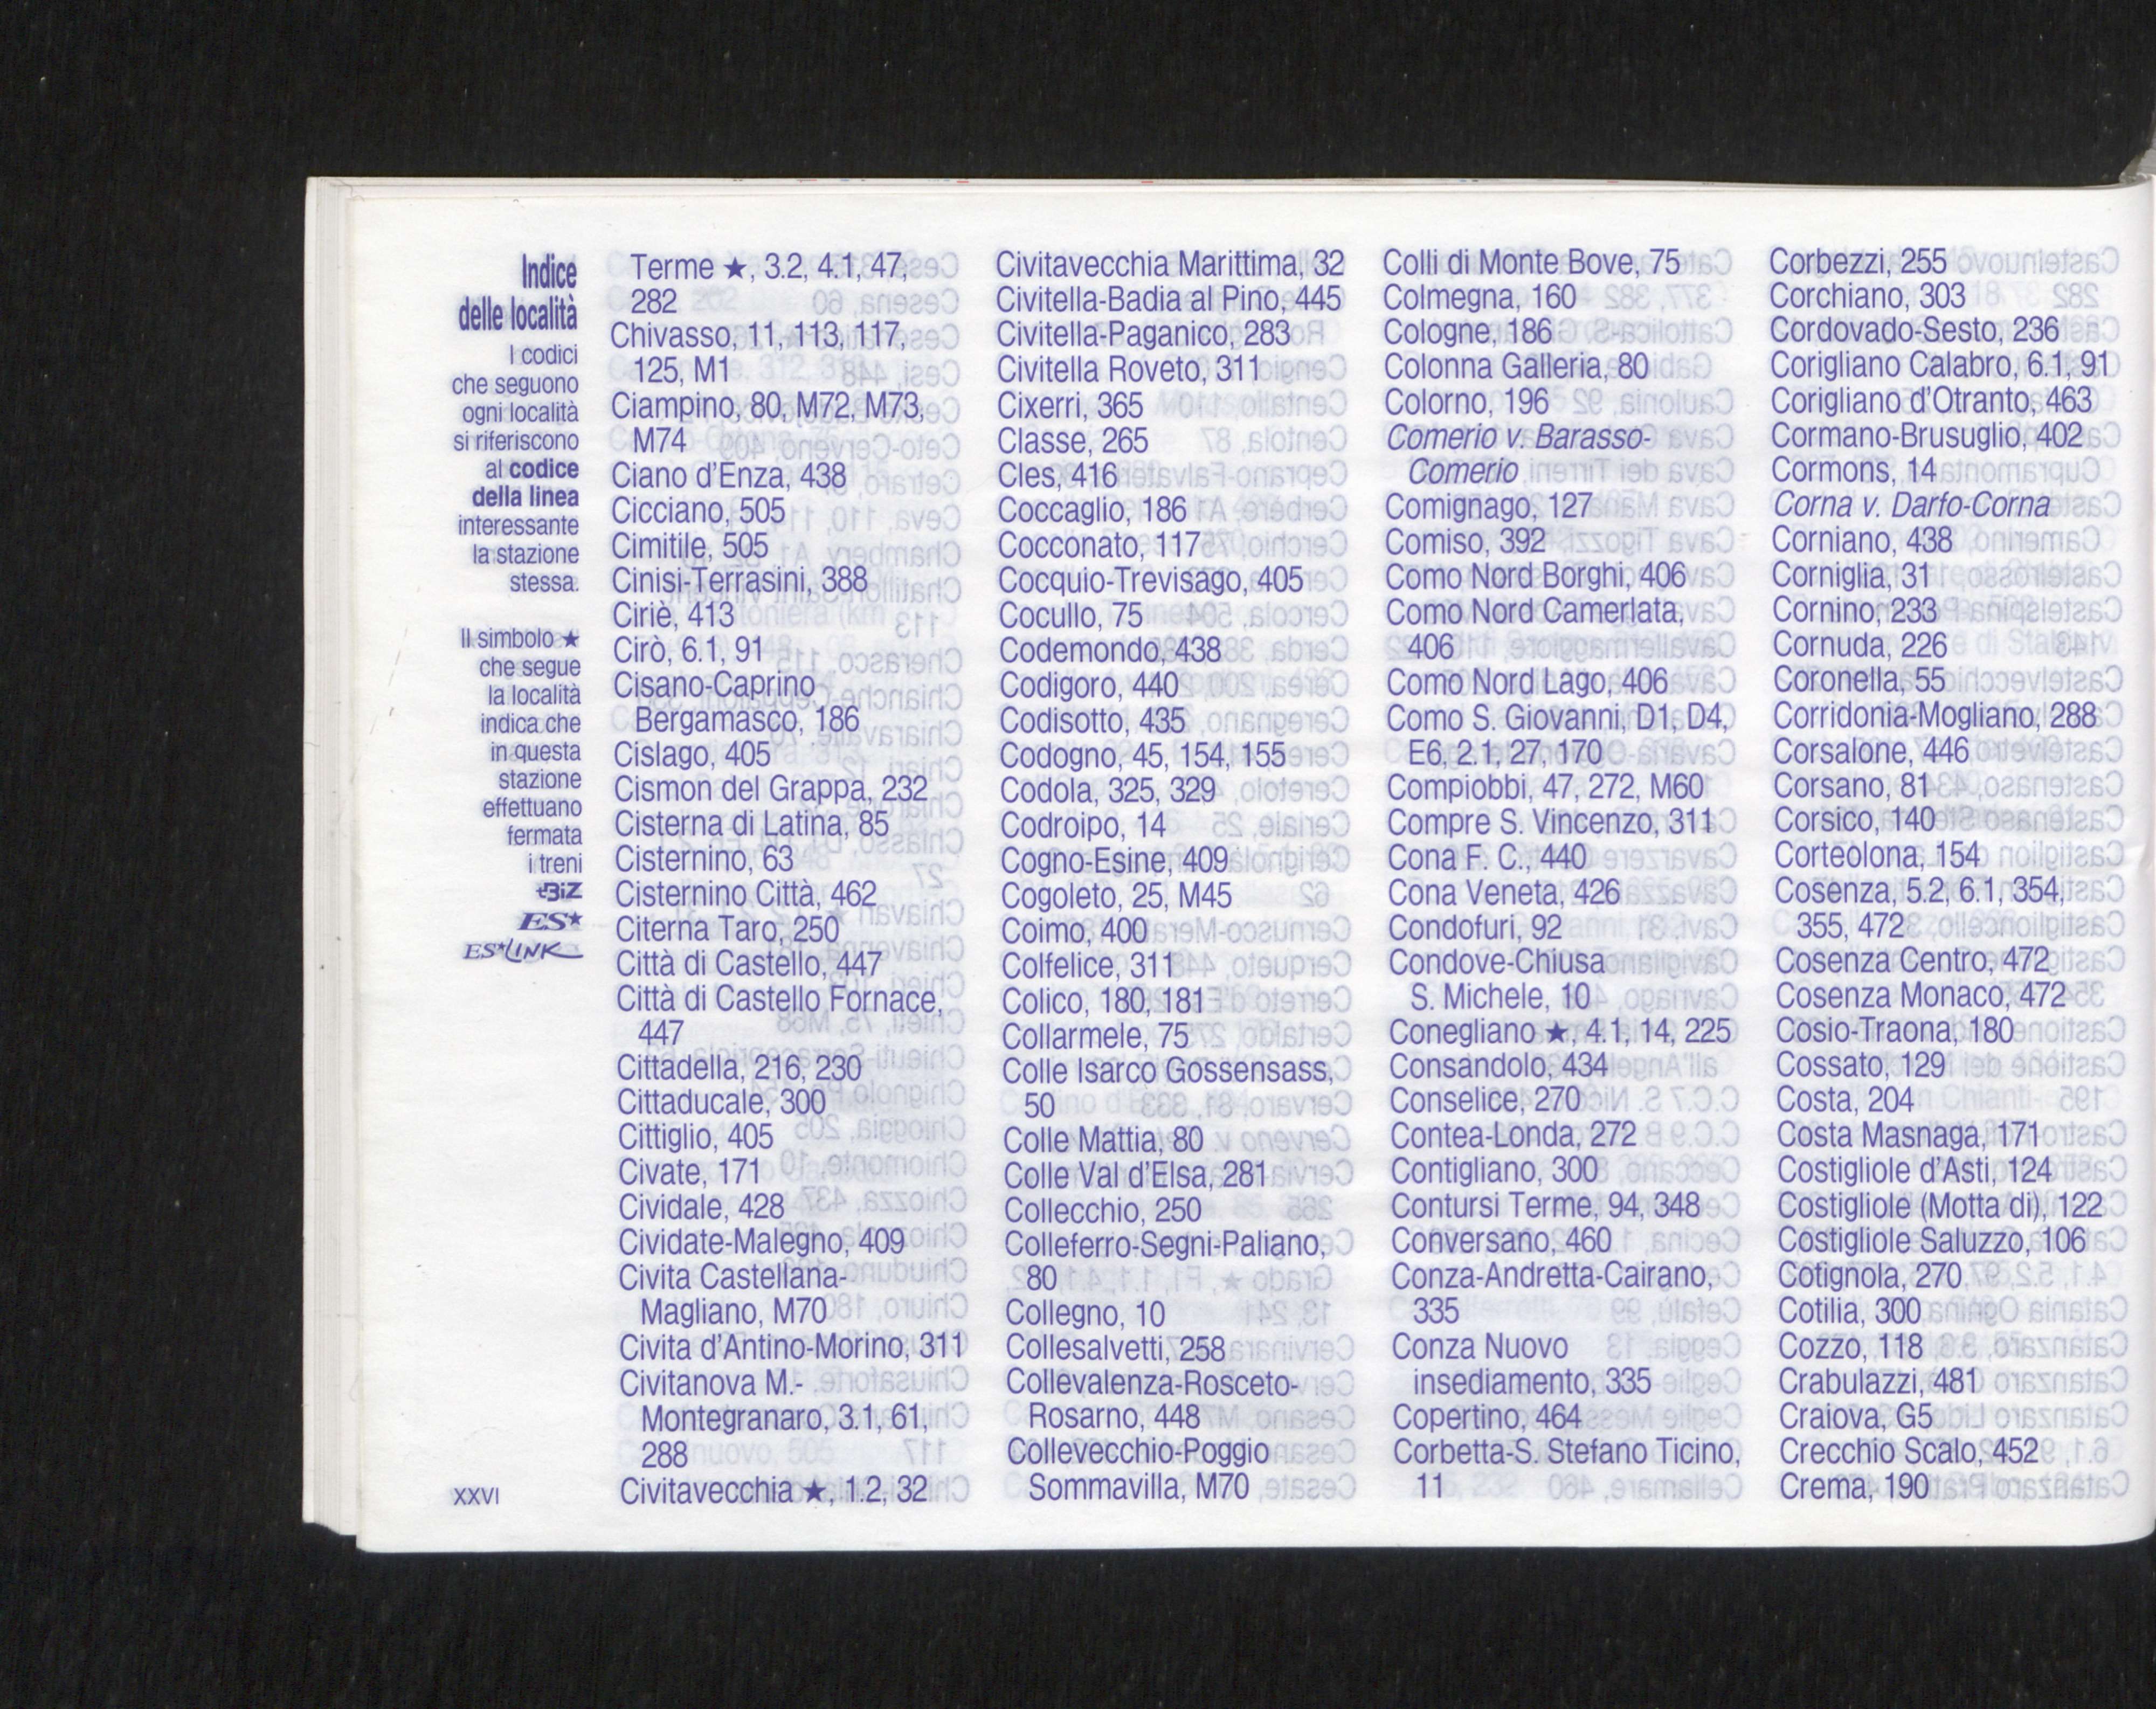 Indice
delle località
I codici
che seguono
ogni località
si riferiscono
al codice
della linea
interessante
la stazione
stessa.
Il simbolo ★
che segue
la località
indica che
in questa
stazione
effettuano
fermata
i treni
tBiz
ES★
ES★LINK
XXVI
Terme ★, 3.2, 4.1, 47,
282
Chivasso, 11, 113, 117,
125, M1
Ciampino, 80, M72, M73,
M74
Ciano d'Enza, 438
Cicciano, 505
Cimitile, 505
Cinisi-Terrasini, 388
Ciriè, 413
Cirò, 6.1, 91
Cisano-Caprino
Bergamasco, 186
Cislago, 405
Cismon del Grappa, 232
Cisterna di Latina, 85
Cisternino, 63
Cisternino Città, 462
Citerna Taro, 250
Città di Castello, 447
Città di Castello Fornace,
447
Cittadella, 216, 230
Cittaducale, 300
Cittiglio, 405
Civate, 171
Cividale, 428
Cividate-Malegno, 409
Civita Castellana-
Magliano, M70
Civita d'Antino-Morino, 311
Civitanova M.-
Montegranaro, 3.1, 61,
288
Civitavecchia ★, 1.2, 32
Civitavecchia Marittima, 32
Civitella-Badia al Pino, 445
Civitella-Paganico, 283
Civitella Roveto, 311
Cixerri, 365
Classe, 265
Cles, 416
Coccaglio, 186
Cocconato, 117
Cocquio-Trevisago, 405
Cocullo, 75
Codemondo, 438
Codigoro, 440
Codisotto, 435
Codogno, 45, 154, 155
Codola, 325, 329
Codroipo, 14
Cogno-Esine, 409
Cogoleto, 25, M45
Coimo, 400
Colfelice, 311
Colico, 180, 181
Collarmele, 75
Colle Isarco Gossensass,
50
Colle Mattia, 80
Colle Val d'Elsa, 281
Collecchio, 250
Colleferro-Segni-Paliano,
80
Collegno, 10
Collesalvetti, 258
Collevalenza-Rosceto-
Rosarno, 448
Collevecchio-Poggio
Sommavilla, M70
Colli di Monte Bove, 75
Colmegna, 160
Cologne, 186
Colonna Galleria, 80
Colorno, 196
Comerio v. Barasso-
Comerio
Comignago, 127
Comiso, 392
Como Nord Borghi, 406
Como Nord Camerlata,
406
Como Nord Lago, 406
Como S. Giovanni, D1, D4,
E6, 2.1, 27, 170
Compiobbi, 47, 272, M60
Compre S. Vincenzo, 311
Cona F. C., 440
Cona Veneta, 426
Condofuri, 92
Condove-Chiusa
S. Michele, 10
Conegliano ★, 4.1, 14, 225
Consandolo, 434
Conselice, 270
Contea-Londa, 272
Contigliano, 300
Contursi Terme, 94, 348
Conversano, 460
Conza-Andretta-Cairano,
335
Conza Nuovo
insediamento, 335
Copertino, 464
Corbetta-S. Stefano Ticino,
11
Corbezzi, 255
Corchiano, 303
Cordovado-Sesto, 236
Corigliano Calabro, 6.1, 91
Corigliano d'Otranto, 463
Cormano-Brusuglio, 402
Cormons, 14
Corna v. Darfo-Corna
Corniano, 438
Corniglia, 31
Cornino, 233
Cornuda, 226
Coronella, 55
Corridonia-Mogliano, 288
Corsalone, 446
Corsano, 81
Corsico, 140
Corteolona, 154
Cosenza, 5.2, 6.1, 354,
355, 472
Cosenza Centro, 472
Cosenza Monaco, 472
Cosio-Traona, 180
Cossato, 129
Costa, 204
Costa Masnaga, 171
Costigliole d'Asti, 124
Costigliole (Motta di), 122
Costigliole Saluzzo, 106
Cotignola, 270
Cotilia, 300
Cozzo, 118
Crabulazzi, 481
Craiova, G5
Crecchio Scalo, 452
Crema, 190